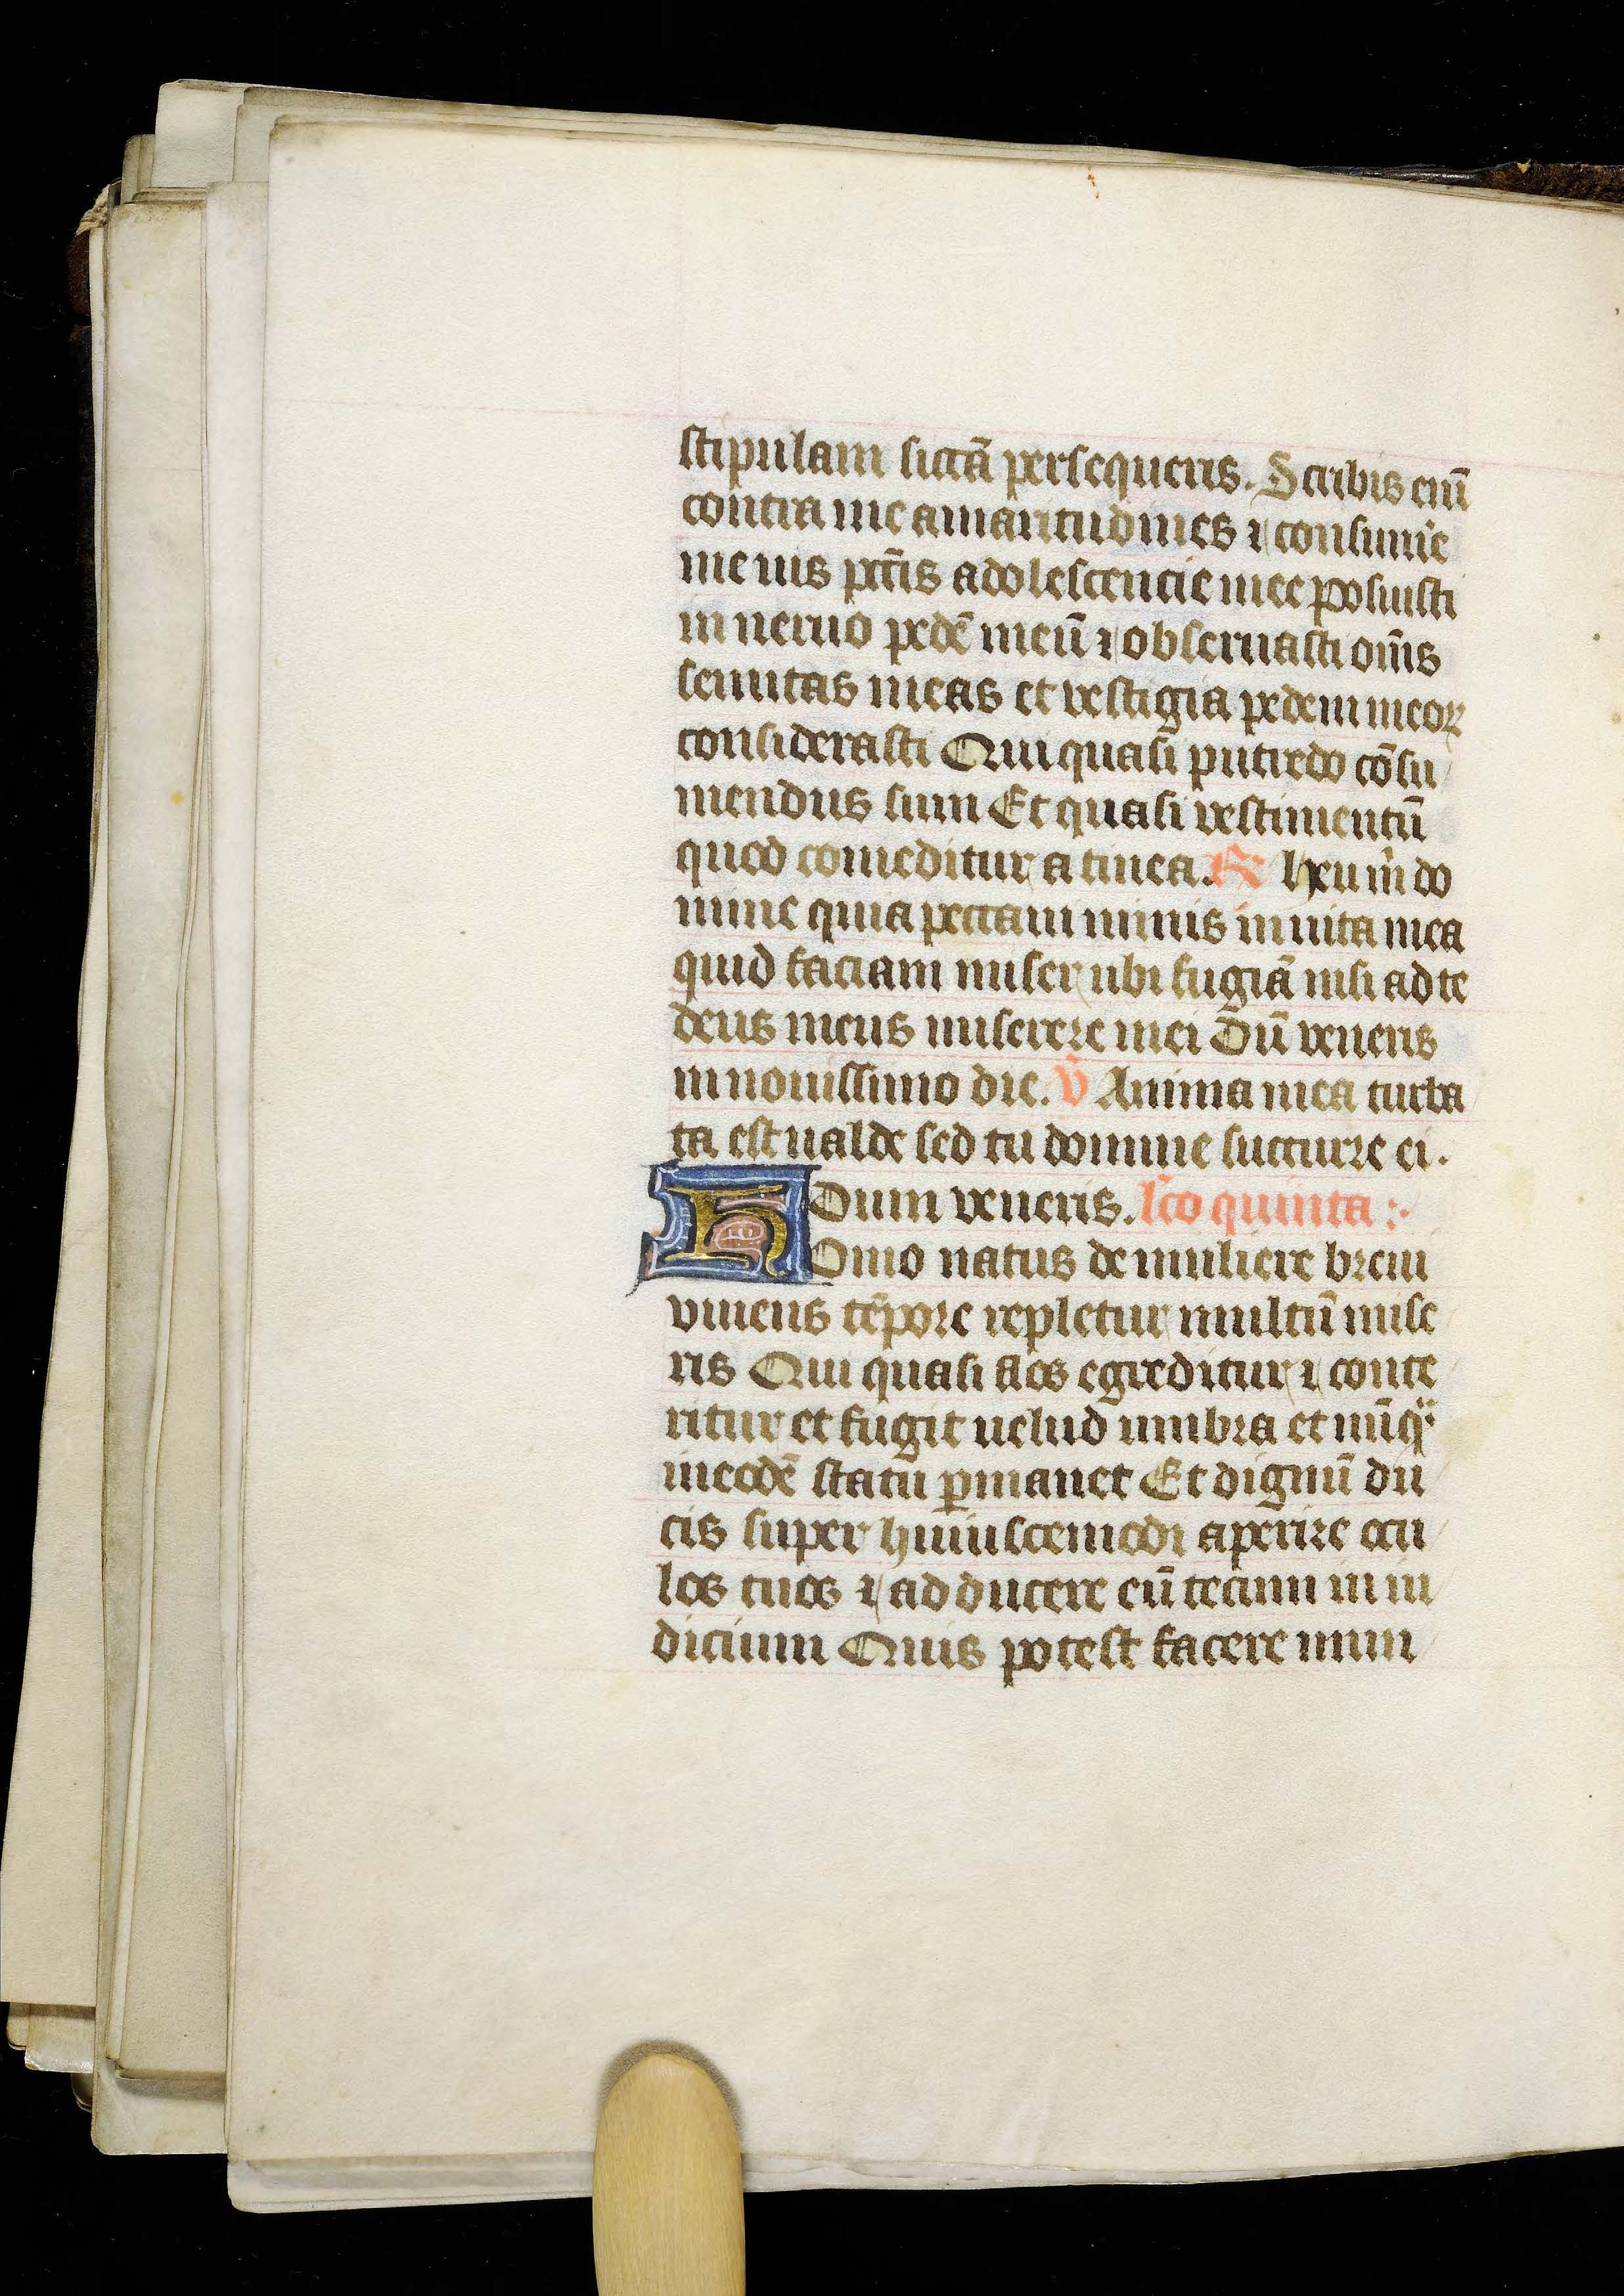 stipulam siccā persequeris. Scribis enī
contra me amaritudines ⁊ consumͤe
me uis pctīs adolescencie mee posuisti
in neruo pedē meū ⁊ obseruasti om̄s
semitas meas et vestigia pedem meoꝝ
considerasti Qui quasi putredo cōsu
mendus sum Et quasi vestimentū
quod comeditur a tinea. ℟ heu m̄ do
mine quia peccaui nimis in uita mea
quid faciam miser ubi fugiā nisi ad te
deus meus miserere mei Dū veneris
in nouissimo die. V̄ Anima mea turba
ta est ualde sed tu domine succurre ei.
Dum veneris. lc̄o quinta :·
HOmo natus de muliere breui
viuens tēpore repletur multū mise
riis Qui quasi flos egreditur ⁊ conte
ritur et fugit uelud umbra et nūqͣ
in eodē statu ꝑmanet Et dignū du
cis super huiuscemodi aperire ocu
los tuos ⁊ adducere eū tecum in iu
dicium Quis potest facere mun